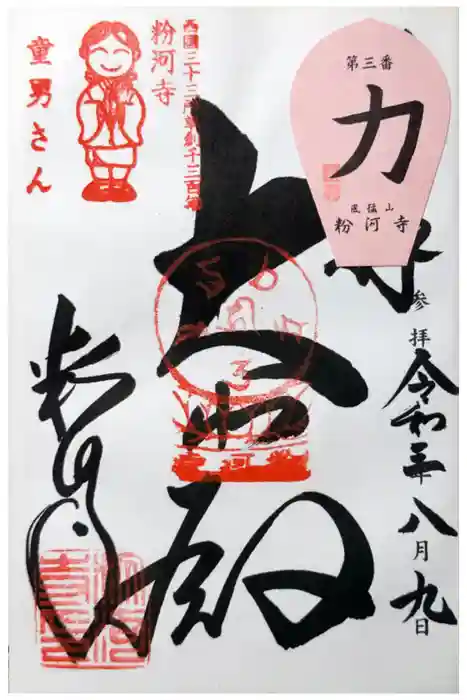 第三番
力
風猛山
粉河寺
参拝
令和三年八月九日
西国三十三所草創千三百年
粉河寺
童男さん
大悲殿
粉河寺